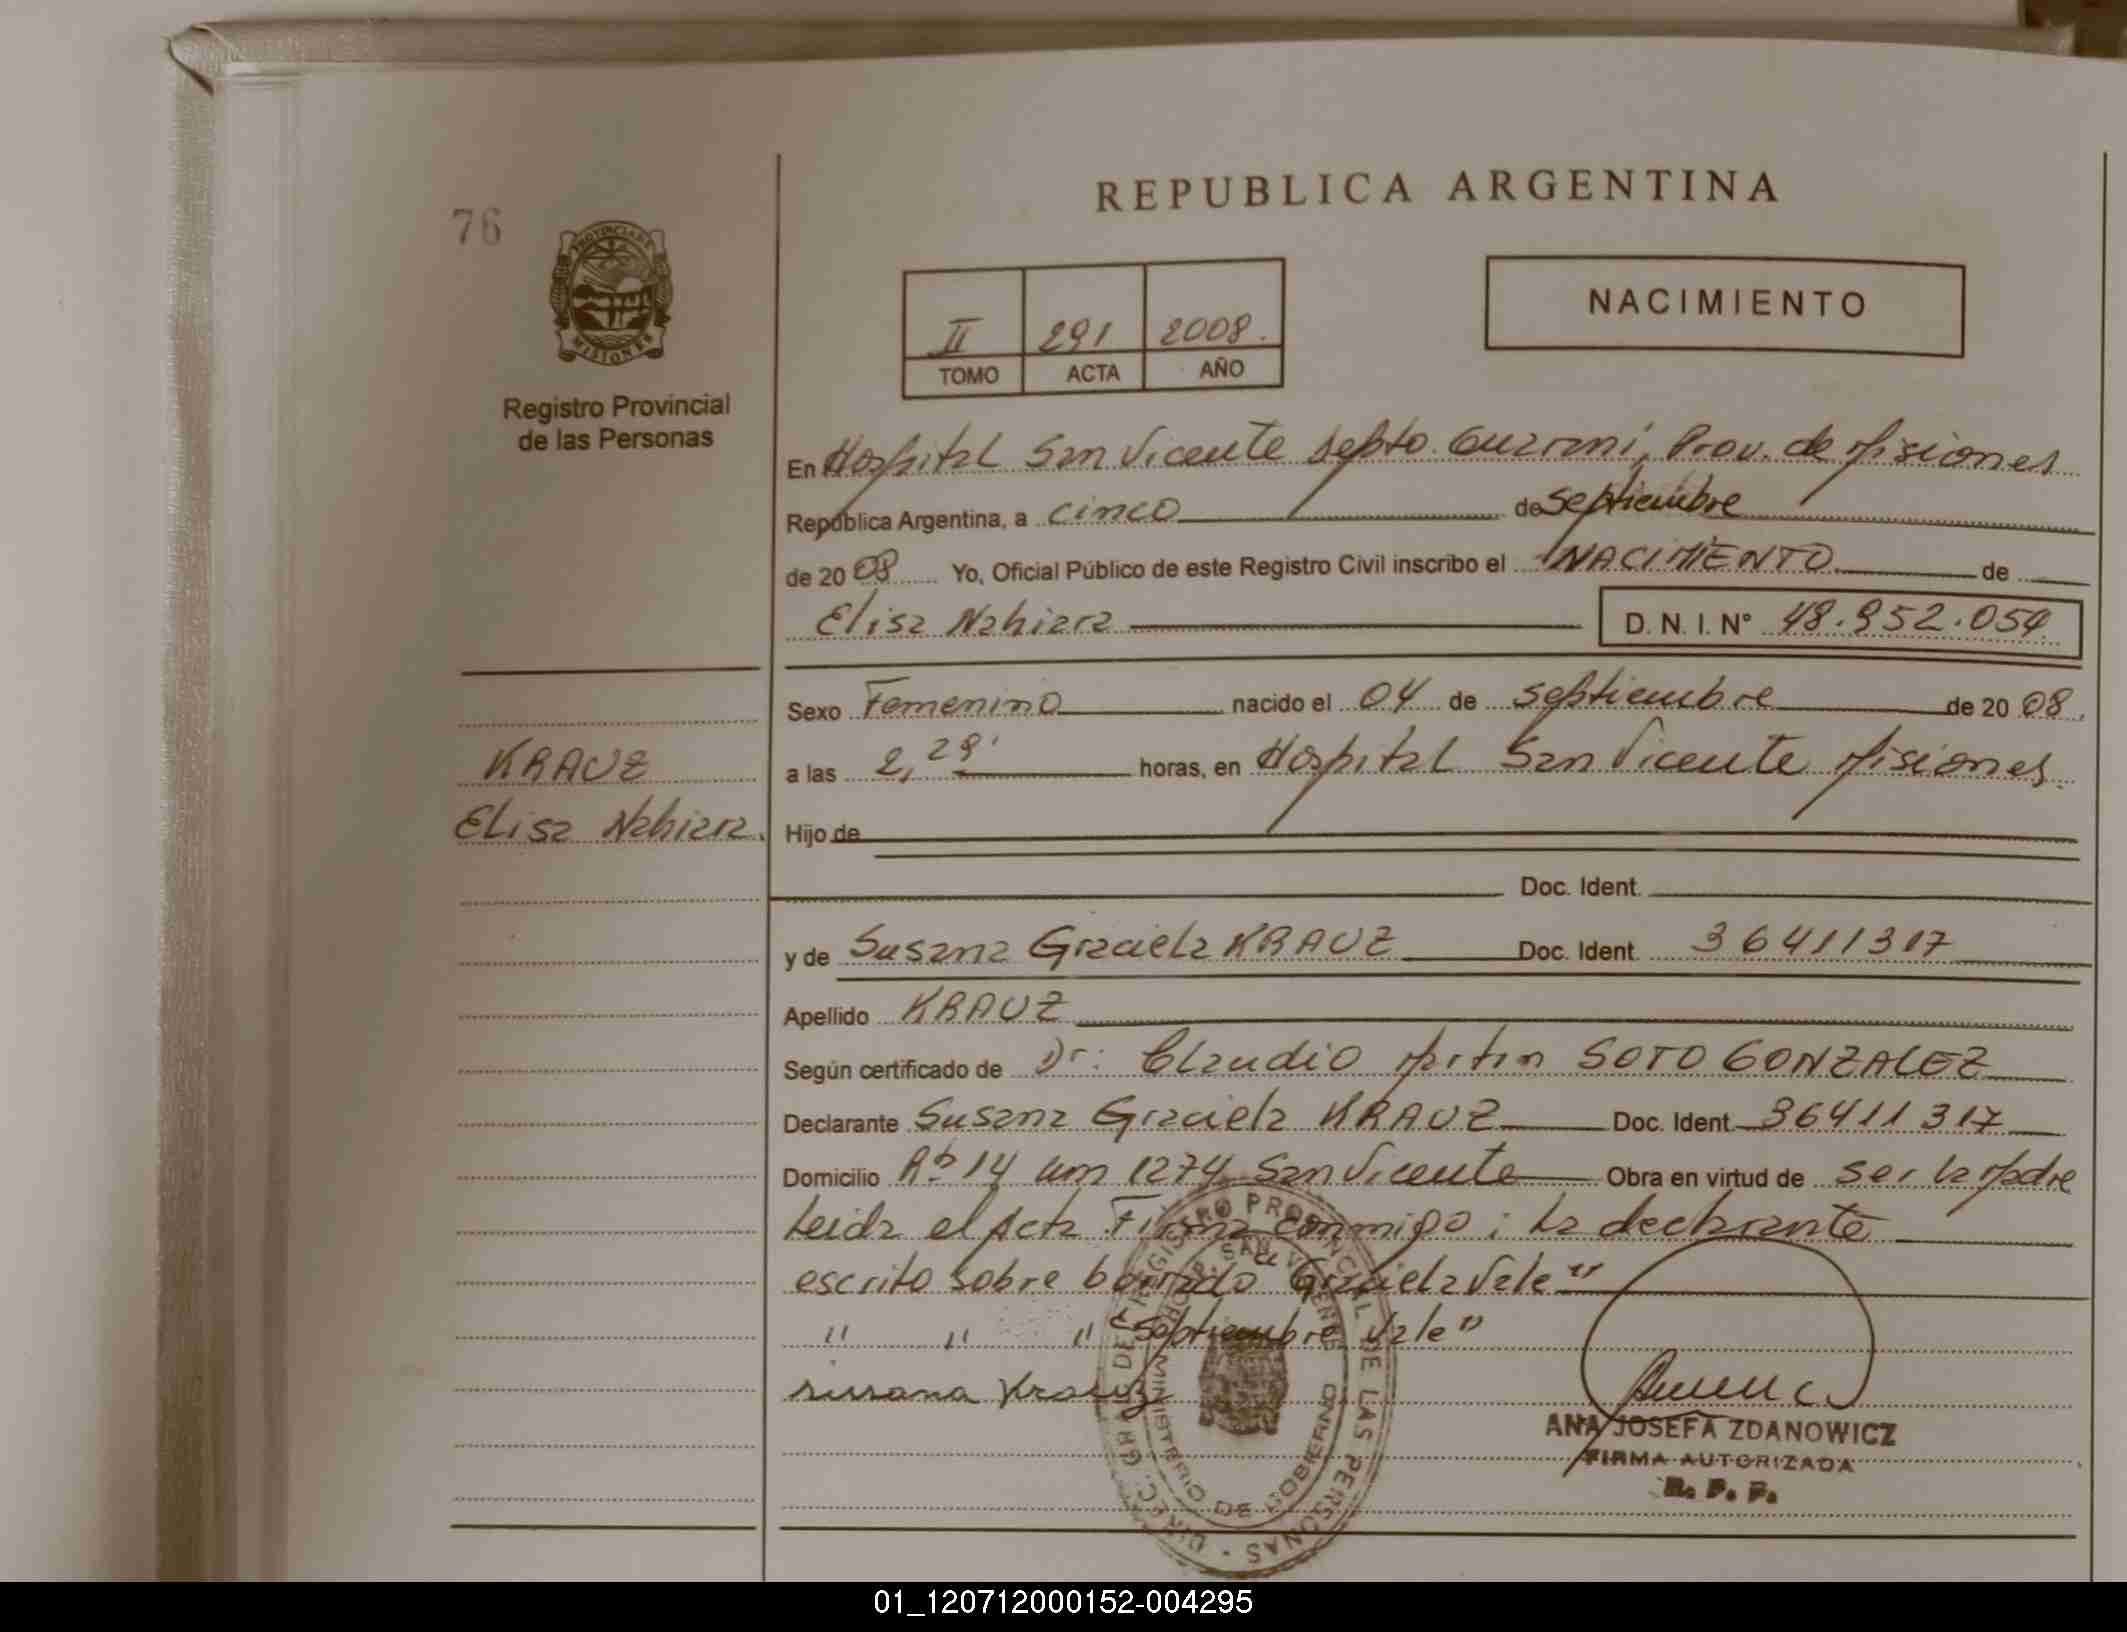 REPUBLICA ARGENTINA
76
PROVINCIA DE
MISIONES
Registro Provincial
de las Personas
NACIMIENTO
II 291 2008.
TOMO ACTA AÑO
En Hospital San Vicente Depto. Guarani, Prov. de Misiones
República Argentina, a cinco de septiembre
de 2008 Yo, Oficial Público de este Registro Civil inscribo el NACIMIENTO de
Elisa Nahiara D. N. I. N° 48.952.054
Sexo Femenino nacido el 04 de septiembre de 2008.
a las 2,29' horas, en Hospital San Vicente Misiones.
KRAUZ
Elisa Nahiara.
Hijo de
Doc. Ident.
y de Susana Graciela KRAUZ Doc. Ident. 36411317
Apellido KRAUZ
Según certificado de Dr: Claudio Martin SOTO GONZALEZ
Declarante Susana Graciela KRAUZ Doc. Ident. 36411317
Domicilio 14 km 1274 San Vicente Obra en virtud de ser la Madre
Leida el Acta Firma conmigo: La declarante
escrito sobre borrado "Graciela Vale"
" " " "Septiembre Vale"
susana Krauz
DIREC. GRAL. DEL REGISTRO PROVINCIAL DE LAS PERSONAS
SAN VICENTE
MINISTERIO DE GOBIERNO
ANA JOSEFA ZDANOWICZ
FIRMA AUTORIZADA
R. P. P.
01_120712000152-004295